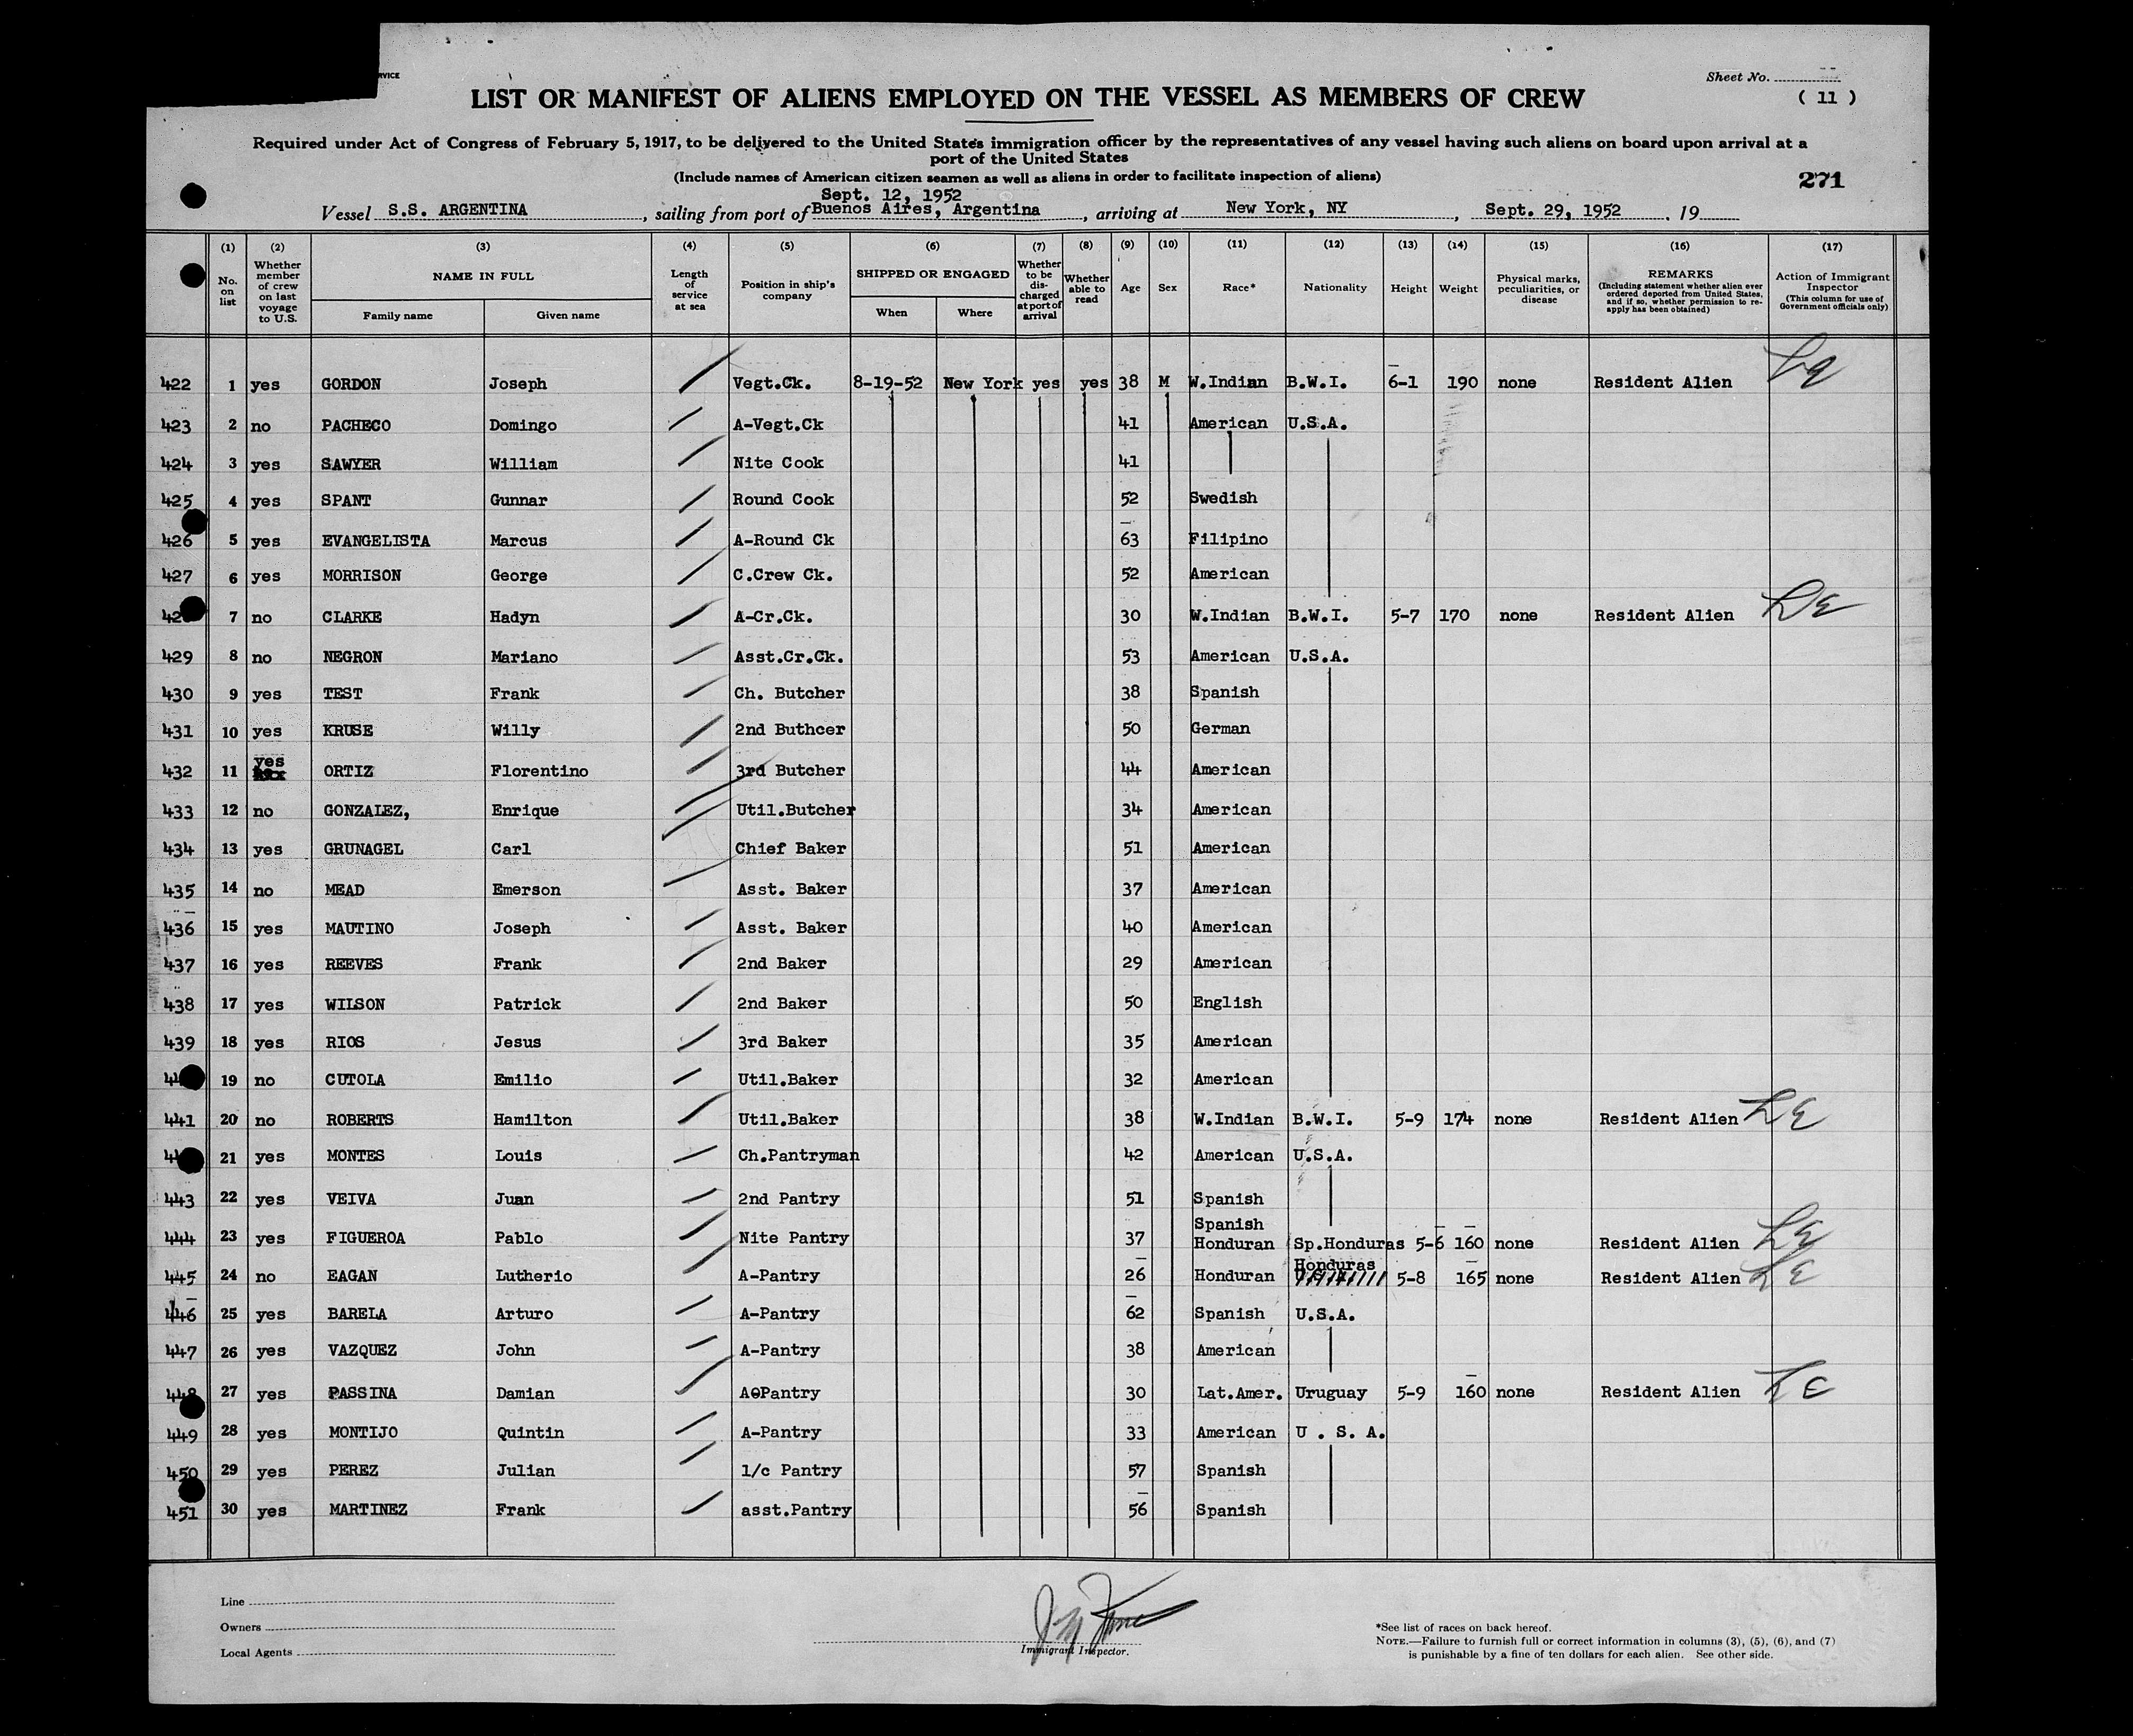 RVICE
Sheet No.
LIST OR MANIFEST OF ALIENS EMPLOYED ON THE VESSEL AS MEMBERS OF CREW
( 11 )
Required under Act of Congress of February 5, 1917, to be delivered to the United States immigration officer by the representatives of any vessel having such aliens on board upon arrival at a
port of the United States
(Include names of American citizen seamen as well as aliens in order to facilitate inspection of aliens)
271
Sept. 12, 1952
Vessel S.S. ARGENTINA, sailing from port of Buenos Aires, Argentina, arriving at New York, NY, Sept. 29, 1952, 19
(1) (2) (3) (4) (5) (6) (7) (8) (9) (10) (11) (12) (13) (14) (15) (16) (17)
No. on list
Whether member of crew on last voyage to U.S.
NAME IN FULL
Family name
Given name
Length of service at sea
Position in ship's company
SHIPPED OR ENGAGED
When
Where
Whether to be discharged at port of arrival
Whether able to read
Age
Sex
Race*
Nationality
Height
Weight
Physical marks, peculiarities, or disease
REMARKS
(Including statement whether alien ever ordered deported from United States, and if so, whether permission to re-apply has been obtained)
Action of Immigrant Inspector
(This column for use of Government officials only)
422 1 yes GORDON Joseph Vegt.Ck. 8-19-52 New York yes yes 38 M W.Indian B.W.I. 6-1 190 none Resident Alien
423 2 no PACHECO Domingo A-Vegt.Ck 41 American U.S.A.
424 3 yes SAWYER William Nite Cook 41
425 4 yes SPANT Gunnar Round Cook 52 Swedish
426 5 yes EVANGELISTA Marcus A-Round Ck 63 Filipino
427 6 yes MORRISON George C.Crew Ck. 52 American
42 7 no CLARKE Hadyn A-Cr.Ck. 30 W.Indian B.W.I. 5-7 170 none Resident Alien
429 8 no NEGRON Mariano Asst.Cr.Ck. 53 American U.S.A.
430 9 yes TEST Frank Ch. Butcher 38 Spanish
431 10 yes KRUSE Willy 2nd Buthcer 50 German
432 11 yes ORTIZ Florentino 3rd Butcher 44 American
433 12 no GONZALEZ, Enrique Util.Butcher 34 American
434 13 yes GRUNAGEL Carl Chief Baker 51 American
435 14 no MEAD Emerson Asst. Baker 37 American
436 15 yes MAUTINO Joseph Asst. Baker 40 American
437 16 yes REEVES Frank 2nd Baker 29 American
438 17 yes WILSON Patrick 2nd Baker 50 English
439 18 yes RIOS Jesus 3rd Baker 35 American
4 19 no CUTOLA Emilio Util.Baker 32 American
441 20 no ROBERTS Hamilton Util.Baker 38 W.Indian B.W.I. 5-9 174 none Resident Alien
4 21 yes MONTES Louis Ch.Pantryman 42 American U.S.A.
443 22 yes VEIVA Juan 2nd Pantry 51 Spanish
444 23 yes FIGUEROA Pablo Nite Pantry 37 Spanish Honduran Sp.Honduras 5-6 160 none Resident Alien
445 24 no EAGAN Lutherio A-Pantry 26 Honduran Honduras 5-8 165 none Resident Alien
446 25 yes BARELA Arturo A-Pantry 62 Spanish U.S.A.
447 26 yes VAZQUEZ John A-Pantry 38 American
448 27 yes PASSINA Damian AOPantry 30 Lat.Amer. Uruguay 5-9 160 none Resident Alien
449 28 yes MONTIJO Quintin A-Pantry 33 American U . S. A.
450 29 yes PEREZ Julian 1/c Pantry 57 Spanish
451 30 yes MARTINEZ Frank asst.Pantry 56 Spanish
Line
Owners
Local Agents
Immigrant Inspector.
*See list of races on back hereof.
NOTE.—Failure to furnish full or correct information in columns (3), (5), (6), and (7)
is punishable by a fine of ten dollars for each alien. See other side.